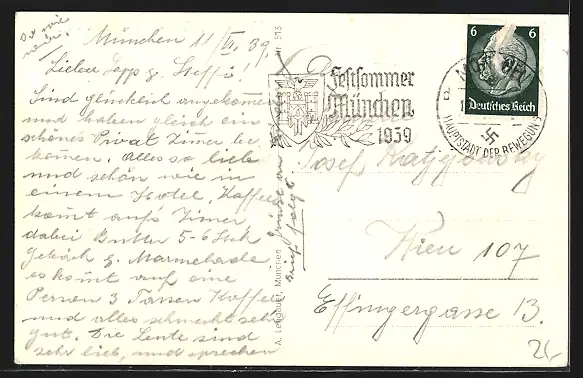 München 11/VI. 39.
Lieben Sepp u. Steffi!
Sind glücklich angekommen
und haben gleich ein
schönes Privat Zimer be
komen. Alles so lieb
und schön wie in
einem Hotel, Kaffee
komt aufs Zimer
dabei Butter 5-6 Stk
Gebäck u. Marmelade
es komt auf eine
Person 3 Tassen Kaffee
und alles schmeckt sehr
gut. Die Leute sind
sehr lieb, und sprechen
Nr. 515
A. Lengauer, München
Festsommer
München
1939
6 6
Deutsches Reich
MÜNCHEN
HAUPTSTADT DER BEWEGUNG
Josef
Wien 107
Effingergasse 13.